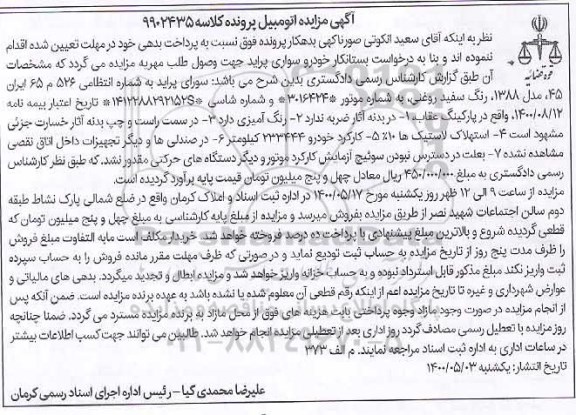 آگهی مزایده اتومبیل پرونده کلاسه ۹۹۰۲۴۳۵
نظر به اینکه آقای سعید انکوتی صورناکهی بدهکار پرونده فوق نسبت به پرداخت بدهی خود در مهلت تعیین شده اقدام
ننموده اند و بنا به درخواست بستانکار خودرو سواری پراید جهت وصول طلب مهریه مزایده می گردد که مشخصات
آن طبق گزارش کارشناس رسمی دادگستری بدین شرح می باشد: سواری پراید به شماره انتظامی ۵۲۶ م ۶۵ ایران
۴۵، مدل ۱۳۸۸، رنگ سفید روغنی، به شماره موتور *۳۰۱۶۴۲۴* و شماره شاسی *S۱۴۱۲۲۸۸۲۹۲۱۵۲* تاریخ اعتبار بیمه نامه
۱۴۰۰/۰۸/۱۲، واقع در پارکینگ عقاب. ۱- در بدنه آثار ضربه ندارد ۲- رنگ آمیزی دارد ۳- در سمت راست و چپ بدنه آثار خسارت جزئی
مشهود است ۴- استهلاک لاستیک ها ۱۰٪ ۵- کارکرد خودرو ۲۳۳۴۴۴ کیلومتر ۶- در صندلی ها و دیگر تجهیزات داخل اتاق نقصی
مشاهده نشده ۷- بعلت در دسترس نبودن سوئیچ آزمایش کارکرد موتور و دیگر دستگاه های حرکتی مقدور نشد. که طبق نظر کارشناس
رسمی دادگستری به مبلغ ۴۵۰/۰۰۰/۰۰۰ ریال معادل چهل و پنج میلیون تومان قیمت پایه برآورد گردیده است.
مزایده از ساعت ۹ الی ۱۲ ظهر روز یکشنبه مورخ ۱۴۰۰/۰۵/۱۷ در اداره ثبت اسناد و املاک کرمان واقع در ضلع شمالی پارک نشاط طبقه
دوم سالن اجتماعات شهید نصر از طریق مزایده بفروش میرسد و مزایده از مبلغ پایه کارشناسی به مبلغ چهل و پنج میلیون تومان که
قطعی گردیده شروع و بالاترین مبلغ پیشنهادی با پرداخت ده درصد فروخته خواهد شد. خریدار مکلف است مابه التفاوت مبلغ فروش
را ظرف مدت پنج روز از تاریخ مزایده به حساب ثبت تودیع نماید و در صورتی که ظرف مهلت مقرر مانده فروش را به حساب سپرده
ثبت واریز نکند مبلغ مذکور قابل استرداد نبوده و به حساب خزانه واریز خواهد شد و مزایده ابطال و تجدید میگردد. بدهی های مالیاتی و
عوارض شهرداری و غیره تا تاریخ مزایده اعم از اینکه رقم قطعی آن معلوم شده یا نشده باشد به عهده برنده مزایده است. ضمن آنکه پس
از انجام مزایده در صورت وجود مازاد وجوه پرداختی بابت هزینه های فوق از محل مازاد به برنده مزایده مسترد می گردد. ضمنا چنانچه
روز مزایده با تعطیل رسمی مصادف گردد روز اداری بعد از تعطیلی مزایده انجام خواهد شد. طالبین می توانند جهت کسب اطلاعات بیشتر
در ساعات اداری به اداره ثبت اسناد مراجعه نمایند. م الف ۳۷۳
تاریخ انتشار: یکشنبه ۱۴۰۰/۰۵/۰۳
علیرضا محمدی کیا - رئیس اداره اجرای اسناد رسمی کرمان